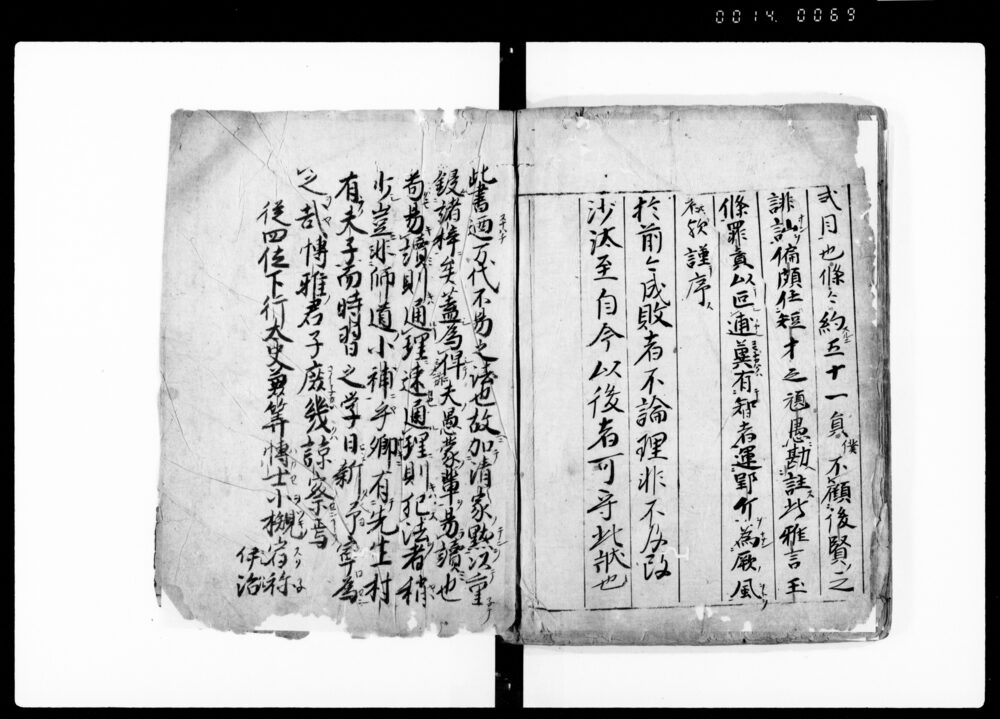 0014. 0069
式目也條々約五十一負僕不顧後賢之
誹訕偏頗任短才之愚勘註此雅言玉
條罪責以匹連莫有智者運郢斤為厥風
秘謹序
於前々成敗者不論理非不及改
沙汰至自今以後者可守此誡也
此書迺万代不易之法也故加清家點以重
鋟諸梓矣蓋為得夫愚蒙輩易讀也
苟易讀則通理速通理則犯法者稍
少豈非師道小補乎卿有先生村
有夫子而時習之学日新寧為
哉博雅君子庶幾諒察焉
従四位下行大史兼筭博士小槻宿祢
伊治